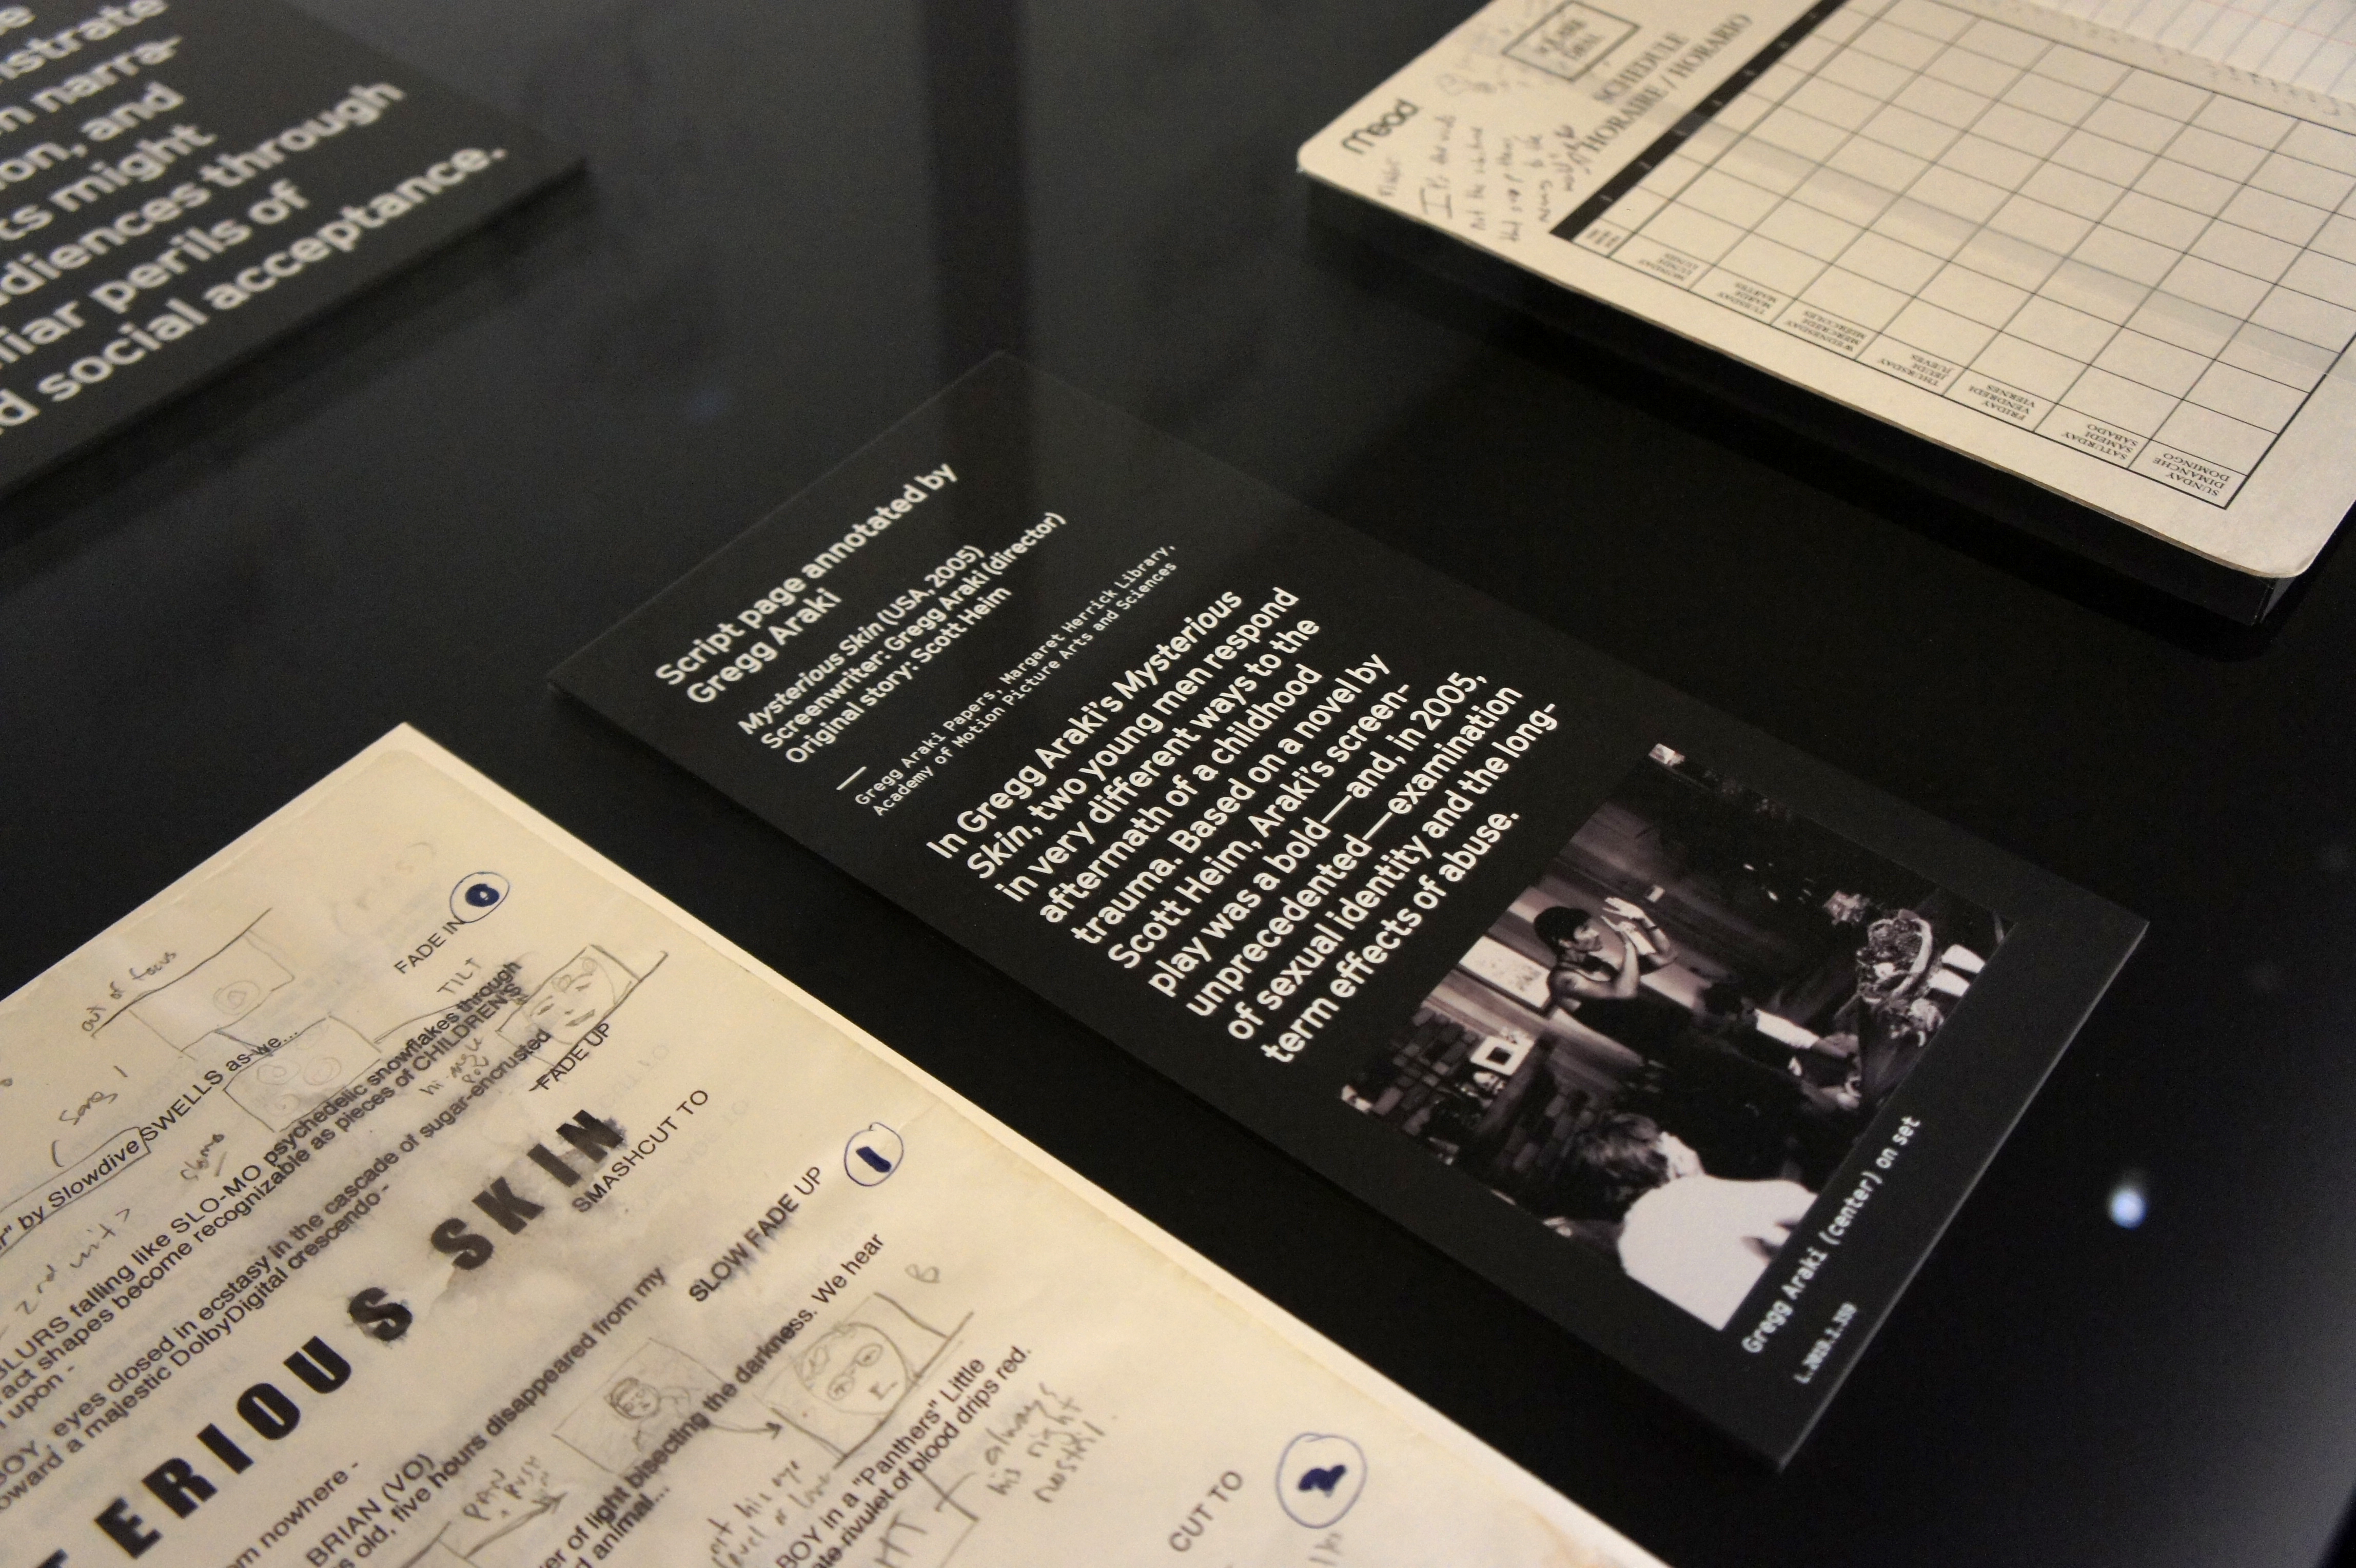 nstrate
n narra-
ion, and
ts might
udiences through
iliar perils of
d social acceptance.
Mead
SCHEDULE
HORAIRE / HORARIO
It's the
not the
that
MONDAY
LUNDI
LUNES
TUESDAY
MARDI
MARTES
WEDNESDAY
MERCREDI
MIÉRCOLES
THURSDAY
JEUDI
JUEVES
FRIDAY
VENDREDI
VIERNES
SATURDAY
SAMEDI
SÁBADO
SUNDAY
DIMANCHE
DOMINGO
Script page annotated by
Gregg Araki
Mysterious Skin (USA, 2005)
Screenwriter: Gregg Araki (director)
Original story: Scott Heim
Gregg Araki Papers, Margaret Herrick Library,
Academy of Motion Picture Arts and Sciences
In Gregg Araki's Mysterious
Skin, two young men respond
in very different ways to the
aftermath of a childhood
trauma. Based on a novel by
Scott Heim, Araki's screen-
play was a bold—and, in 2005,
unprecedented—examination
of sexual identity and the long-
term effects of abuse.
Gregg Araki (center) on set
FADE IN
0
out of focus
TILT
(song 1
r" by Slowdive SWELLS as we...
slomo
2nd unit?
BLURS falling like SLO-MO psychedelic snowflakes through
ract shapes become recognizable as pieces of CHILDREN'S
n upon -
hi angle
BOY, eyes closed in ecstasy in the cascade of sugar-encrusted
oward a majestic DolbyDigital crescendo -
FADE UP
TERIOUS SKIN
SMASHCUT TO
1
SLOW FADE UP
om nowhere -
BRIAN (VO)
s old, five hours disappeared from my
B
PAN
er of light bisecting the darkness. We hear
d animal...
BOY in a "Panthers" Little
ate rivulet of blood drips red.
always
his right
nostril
CUT TO
2